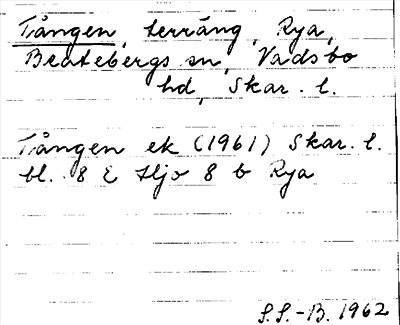 Tången, terräng, Rya,
Beatebergs sn, Vadsbo
hd, Skar. l.
Tången ek (1961) Skar. l.
bl. 8 E Hjo 8 b Rya
S.S.-B. 1962